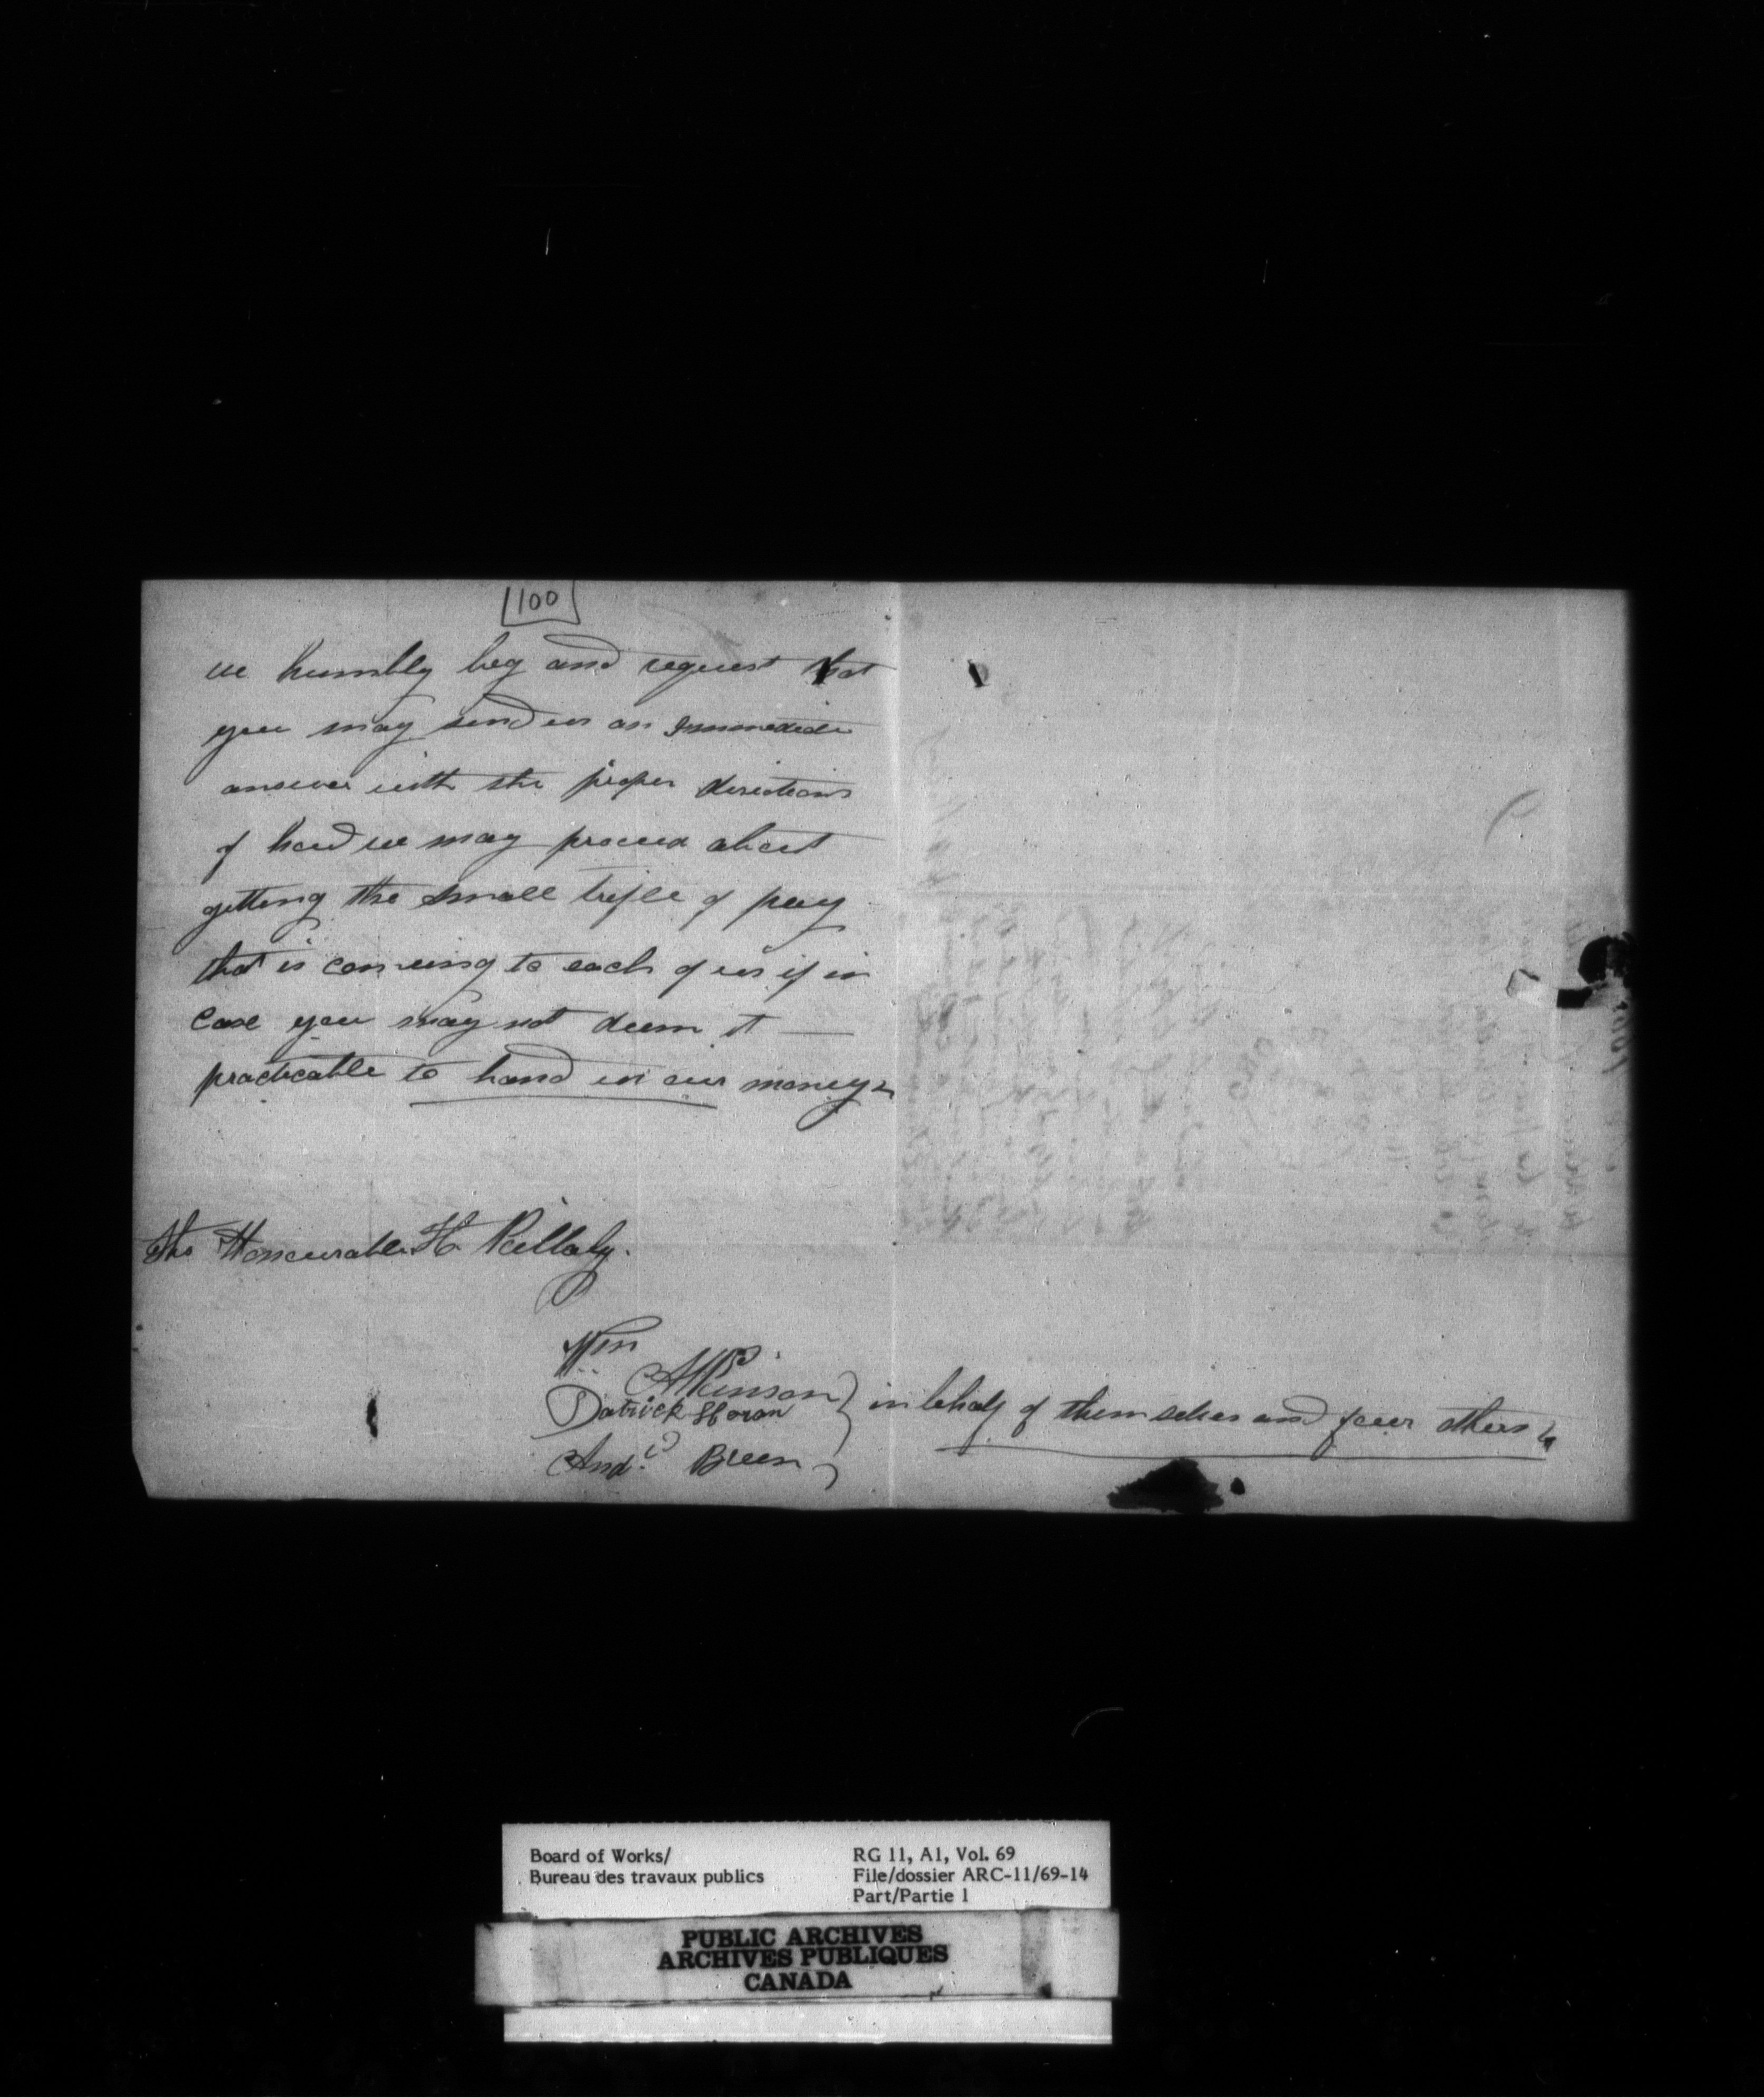 100
we humbly beg and request that
you may send us an Immediate
answer with the proper directions
of how we may proceed about
getting the small trifle of pay
that is comeing to each of us if in
Case you may not deem it —
practicable to hand us our money
The Honourable H Killaly.
Wm Atkinson
Patrick Horan
Andw Breen
in behalf of themselves and four others
Board of Works/
Bureau des travaux publics
RG 11, A1, Vol. 69
File/dossier ARC-11/69-14
Part/Partie 1
PUBLIC ARCHIVES
ARCHIVES PUBLIQUES
CANADA